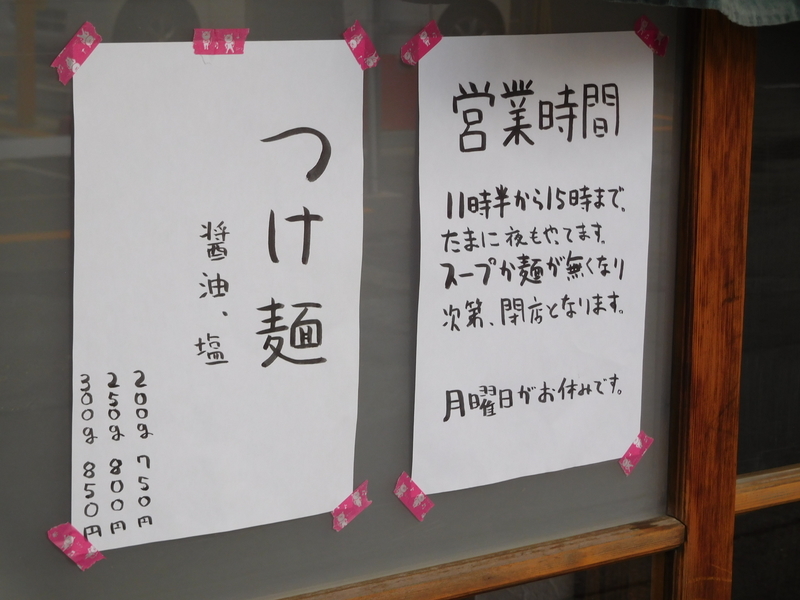 つけ麺
醤油、塩
200g 750円
250g 800円
300g 850円
営業時間
11時半から15時まで、
たまに夜もやってます。
スープか麺が無くなり
次第、閉店となります。
月曜日がお休みです。